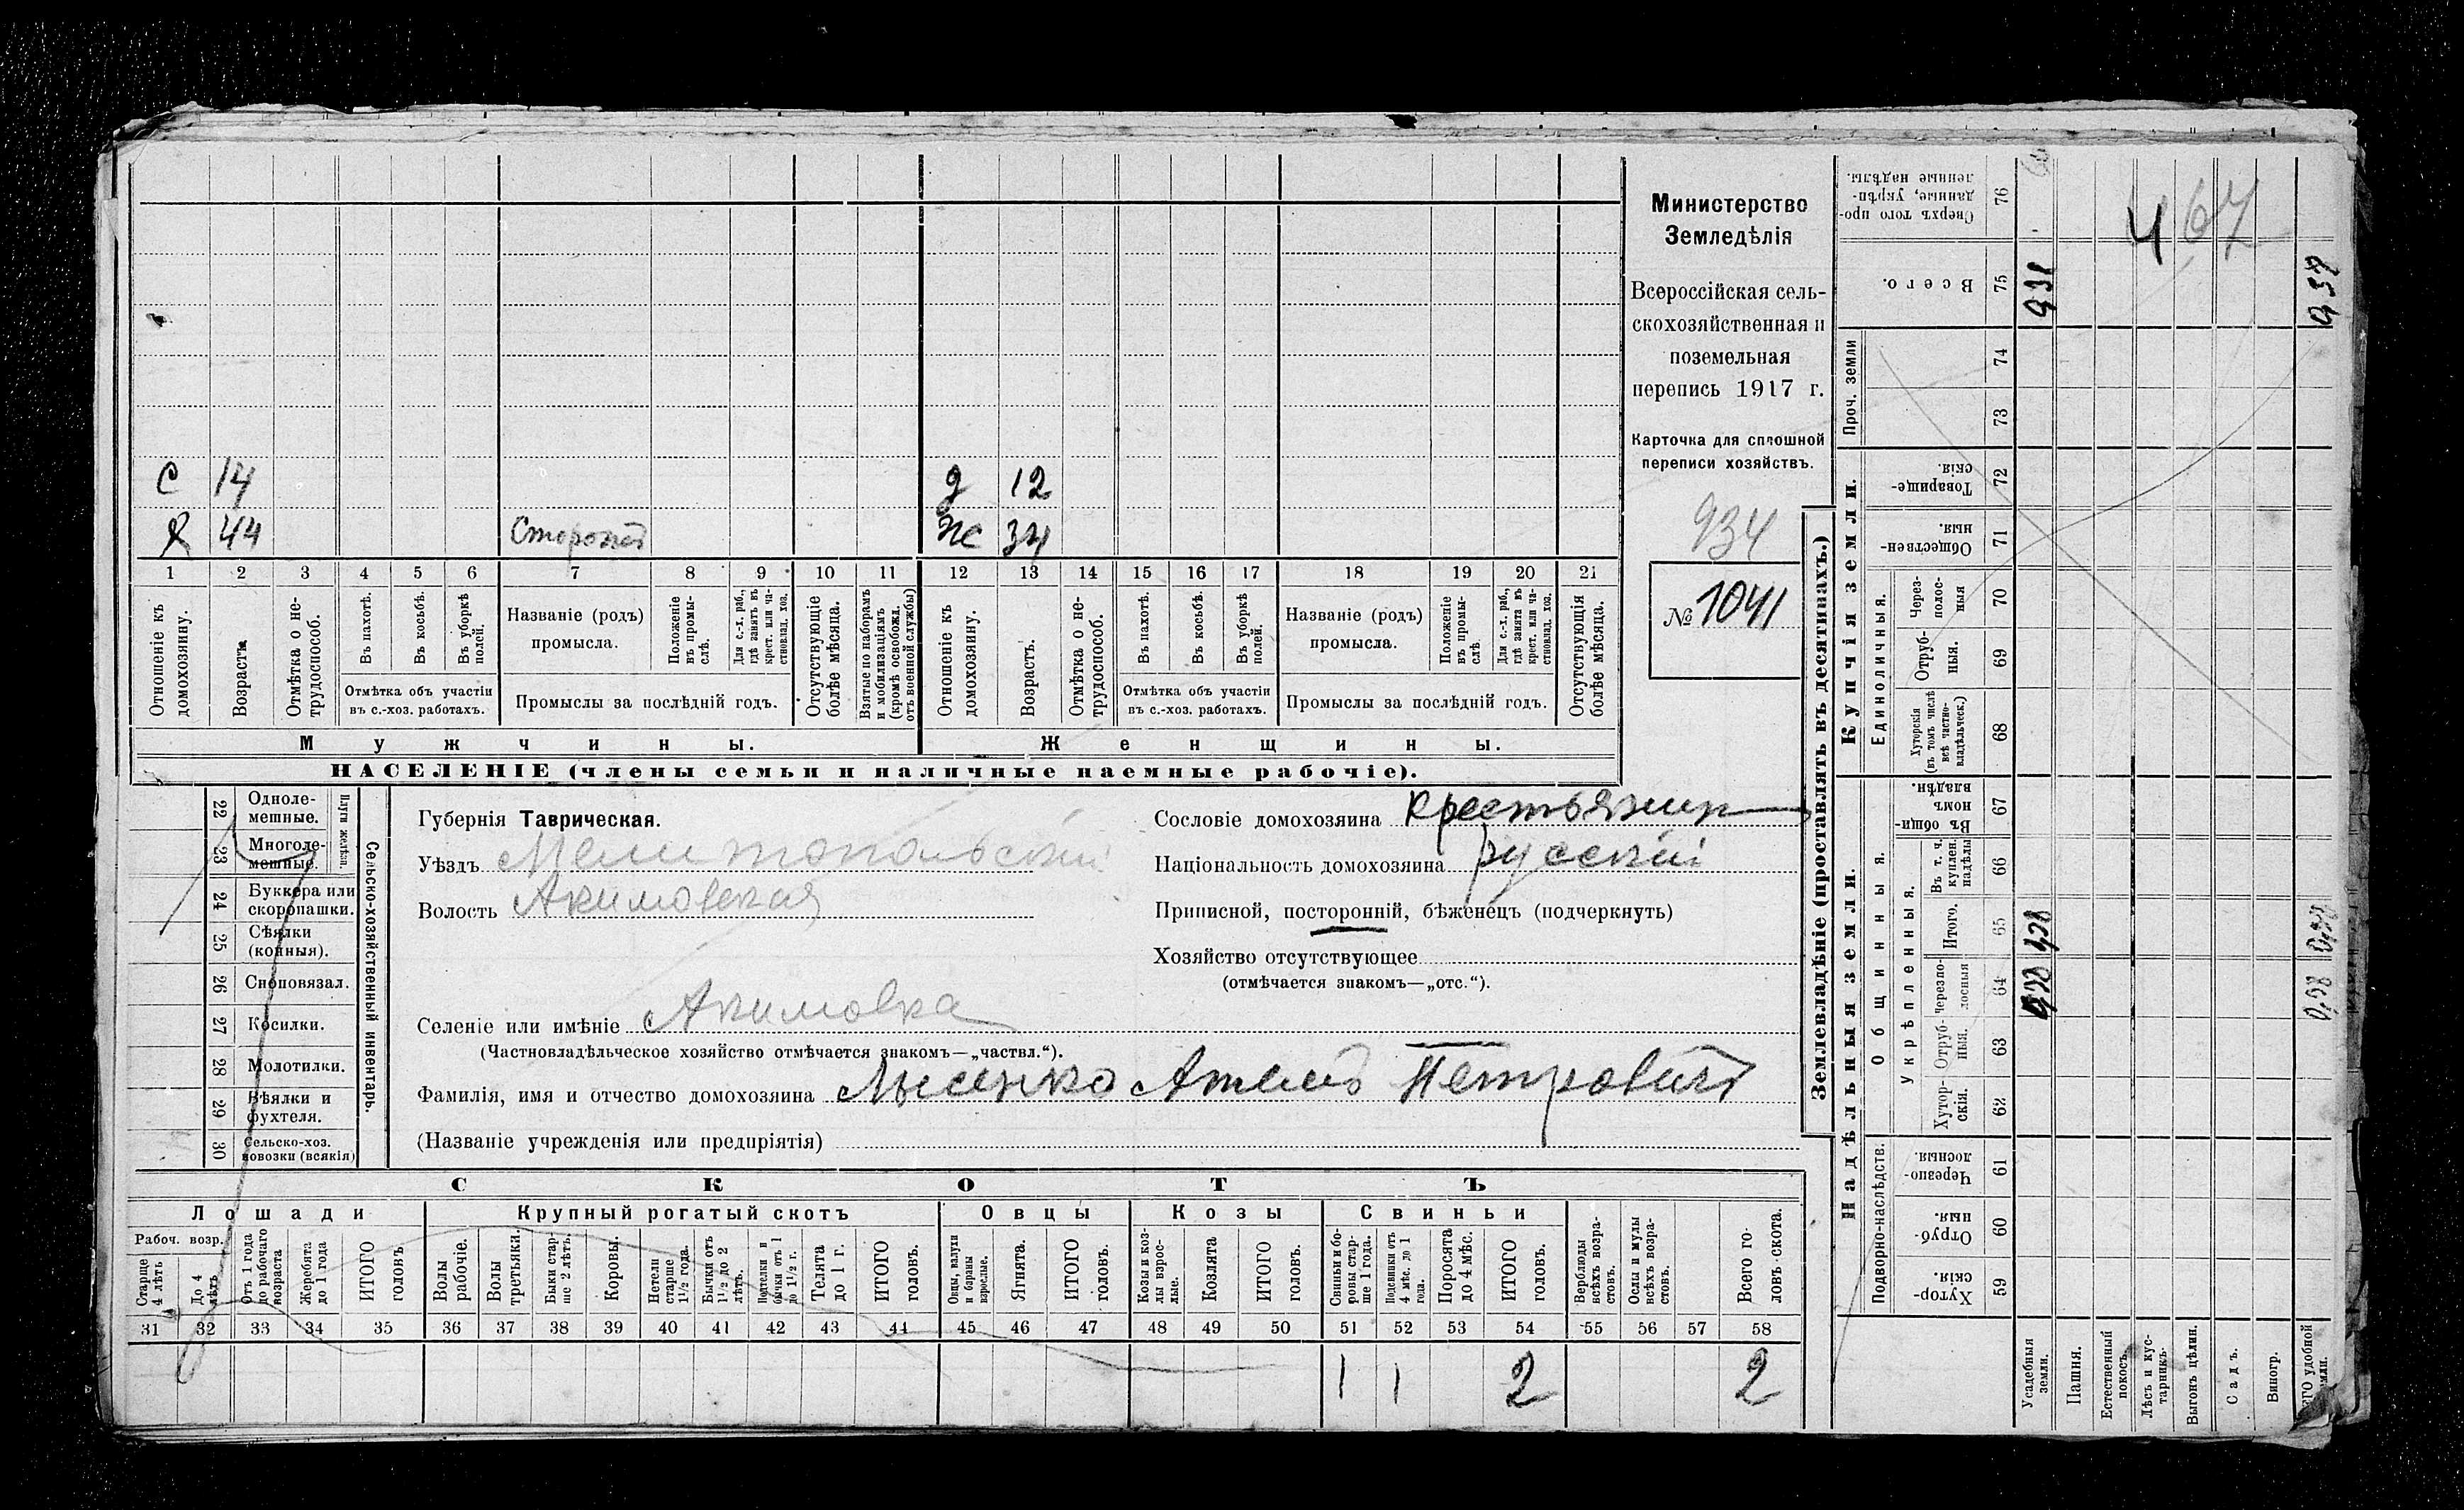 С 14 д 12
Х 44 Сторожъ ж 34
1 2 3 4 5 6 7 8 9 10 11 12 13 14 15 16 17 18 19 20 21
Отношеніе къ домохозяину.
Возрастъ.
Отмѣтка о не-трудоспособ.
Въ пахотѣ.
Въ косьбѣ.
Въ уборкѣ полей.
Отмѣтка объ участіи
въ с.-хоз. работахъ.
Названіе (родъ)
промысла.
Положеніе въ промы-слѣ.
Для с.-х. раб., гдѣ занятъ въ крест. или ча-стновлад. хоз.
Промыслы за послѣдній годъ.
Отсутствующіе болѣе мѣсяца.
Взятые по наборамъ и мобилизаціямъ (кромѣ освобожд. отъ военной службы)
Отношеніе къ домохозяину.
Возрастъ.
Отмѣтка о не-трудоспособ.
Въ пахотѣ.
Въ косьбѣ.
Въ уборкѣ полей.
Отмѣтка объ участіи
въ с.-хоз. работахъ.
Названіе (родъ)
промысла.
Положеніе въ промы-слѣ
Для с.-х. раб., гдѣ занята въ крест. или ча-стновлад. хоз.
Промыслы за послѣдній годъ.
Отсутствующія болѣе мѣсяца.
Мужчины. Женщины.
НАСЕЛЕНІЕ (члены семьи и наличные наемные рабочіе).
Министерство
Земледѣлія
Всероссійская сель-
скохозяйственная и
поземельная
перепись 1917 г.
Карточка для сплошной
переписи хозяйствъ.
934
№ 1041
22 Одноле-мешные.
23 Многоле-мешные.
Плуги желѣзн.
24 Буккера или скоропашки.
25 Сѣялки (конныя).
26 Сноповязал.
27 Косилки.
28 Молотилки.
29 Вѣялки и фухтеля.
30 Сельско-хоз. повозки (всякія)
Сельско-хозяйственный инвентарь.
Губернія Таврическая.
Уѣздъ Мелитопольскій
Волость Акимовская
Селеніе или имѣніе Акимовка
(Частновладѣльческое хозяйство отмѣчается знакомъ—„частвл.“).
Фамилія, имя и отчество домохозяина Лысенко Петровичъ
(Названіе учрежденія или предпріятія)
Сословіе домохозяина крестьянин
Національность домохозяина русскій
Приписной, посторонній, бѣженецъ (подчеркнуть)
Хозяйство отсутствующее
(отмѣчается знакомъ—„отс.“).
СКОТЪ
Лошади Крупный рогатый скотъ Овцы Козы Свиньи
Рабоч. возр.
Старше 4 лѣтъ
До 4 лѣтъ
Отъ 1 года до рабочаго возраста
Жеребята до 1 года
ИТОГО головъ
Волы рабочіе.
Волы третьяки.
Быки стар-ше 2 лѣтъ.
Коровы.
Нетели старше 1½ года.
Бычки отъ 1½ до 2 лѣтъ.
Подтелки и бычки отъ 1 до 1½ г.
Телята до 1 г.
ИТОГО головъ.
Овцы, валухи и бараны взрослые.
Ягнята.
ИТОГО головъ.
Козы и коз-лы взрос-лые.
Козлята
ИТОГО головъ.
Свиньи и бо-ровы стар-ше 1 года.
Подсвинки отъ 4 мѣс. до 1 года.
Поросята до 4 мѣс.
ИТОГО головъ.
Верблюды всѣхъ возра-стовъ.
Ослы и мулы всѣхъ возра-стовъ.
Всего го-ловъ скота.
31 32 33 34 35 36 37 38 39 40 41 42 43 44 45 46 47 48 49 50 51 52 53 54 55 56 57 58
1 1 2 2
Землевладѣніе (проставлять въ десятинахъ.)
Купчія земли.
Надѣльныя земли.
Сверхъ того про-данные, укрѣп-ленные надѣлы. 76
Всего. 75
Проч. земли 74 73
Товарище-скія. 72
Обществен-ныя. 71
Единоличныя.
Через-полос-ныя 70
Отруб-ныя. 69
Хуторскія (въ томъ числѣ всѣ частно-владѣльческ.) 68
Общинныя.
Въ общи-номъ владѣн. 67
Укрѣпленныя.
Въ т. ч. куплен. надѣлы 66
Итого. 65
Черезпо-лосныя 64
Отруб-ныя. 63
Хутор-скія. 62
Подворно-наслѣдств.
Черезпо-лосныя. 61
Отруб-ныя. 60
Хутор-скія. 59
Усадебныя земли.
Пашня.
Естественный покосъ.
Лѣсъ и кус-тарникъ.
Выгонъ цѣлин.
Садъ.
Виногр.
467